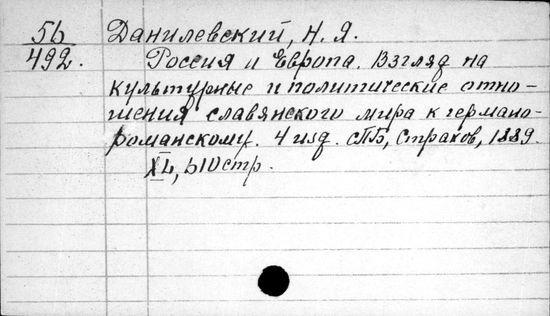 56 Данилевский, Н. Я.
492. Россия и Европа. Взгляд на
культурные и политические отно-
шения славянского мира к германо-
романскому. 4 изд. СПБ, Страхов, 1889.
XL, 610 стр.